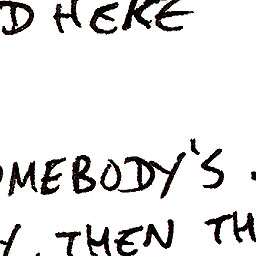 D HERE
OMEBODY'S .
Y. THEN TH